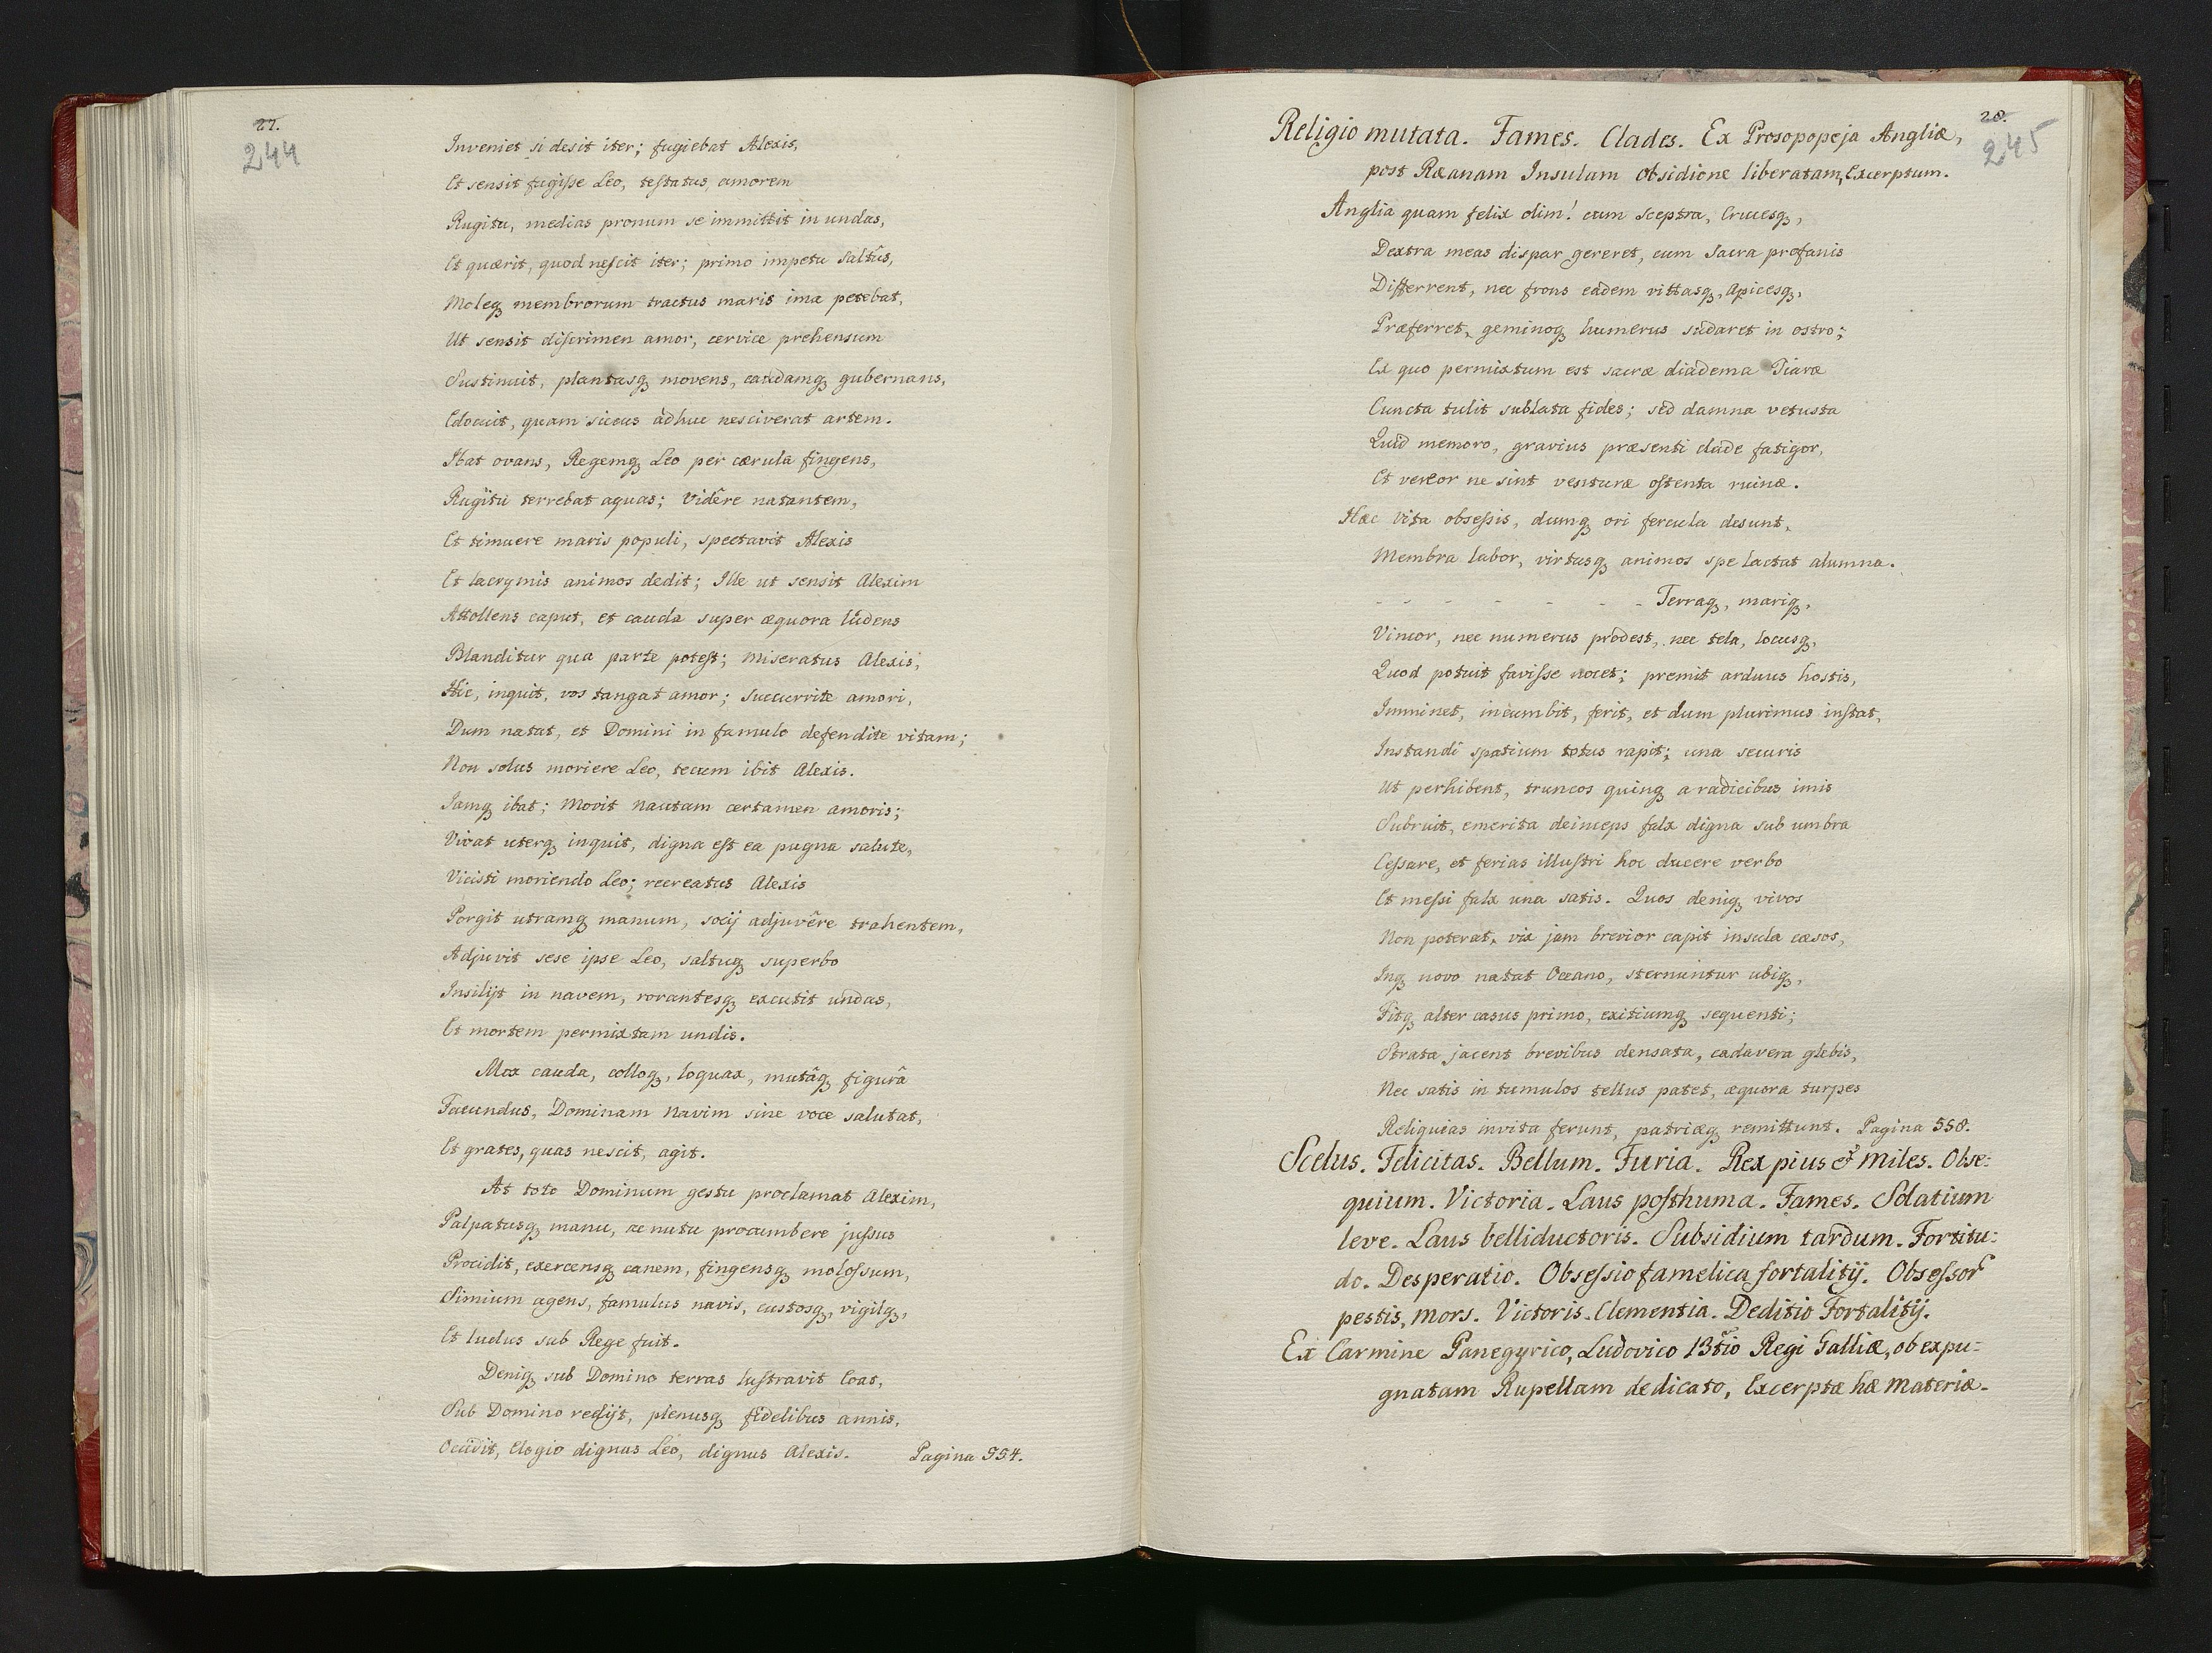 27.
244
Inveniet si desit iter; fugiebat Alexis,
Et sensit fugiſse Leo, teſtatus amorem
Rugitu, medias pronum se immittit in undas,
Et quærit, quod neſcit iter; primo impetu Saltûs,
Moleq membrorum tractus maris ima petebat,
Ut sensit diſcrimen amor, cervice prehensum
Sustinuit, plantasq movens, caudamq gubernans,
Edocuit, quam siccus adhuc nesciverat artem.
Ibat ovans, Regemq Leo per cærula fingens,
Rugitu terrebat aquas; Vidêre natantem,
Et timuere maris populi, spectavit Alexis
Et lacrymis animos dedit; Ille ut sensit Alexim
Attollens caput, et cauda super æquora ludens
Blanditur qua parte poteſt; Miseratus Alexis,
Hic, inquit, vos tangat amor; Succurrite amori,
Dum natat, et Domini in famulo defendite vitam;
Non solus moriere Leo, tecum ibit Alexis.
Jamq ibat; Movit Nautam certamen amoris;
Vivat uterq inquit, digna eſt ea pugna salute,
Vicisti moriendo Leo; recreatus Alexis
Porgit utramq manum, socij adjuvêre trahentem,
Adjuvit sese ipse Leo, saltuq superbo
Insilijt in navem, rorantesq excutit undas,
Et mortem permixtam undis.
Mox cauda, colloq, loquax, mutâq figurâ
Facundus, Dominam Navim sine voce salutat,
Et grates, quas nescit, agit.
At toto Dominum gestu proclamat Alexim,
Palpatusq manu, ac nutu procumbere juſsus
Procidit, exercensq canem, fingensq moloſsum,
Simium agens, famulus navis, custosq, vigilq,
Et ludus sub Rege fuit.
Deniq sub Domino terras luſtravit Eoas,
Sub Domino redijt, plenusq fidelibus annis,
Occidit, Elogio dignus Leo, dignus Alexis. Pagina 554.
28.
245
Religio mutata. Fames. Clades. Ex Prosopopeja Angliæ,
post Ræanam Insulam obsidione liberatam, Excerptum.
Anglia quam felix olim! cum Sceptra, Crucesq,
Dextra meas dispar gereret, cum Sacra profanis
Differrent, nec frons eadem vittasq, Apicesq,
Præferret, geminoq humerus sudaret in ostro;
Ex quo permixtum est sacræ diadema Tiaræ
Cuncta tulit sublata fides; sed damna vetusta
Quid memoro, gravius præsenti clade fatigor,
Et vereor ne sint venturæ oſtenta ruinæ.
Hæc Vita obseſsis, dumq ori fercula desunt,
Membra labor, virtusq animos spe lactat alumna.
- - - - - - - Terraq, mariq,
Vincor, nec numerus prodest, nec tela, locusq,
Quod potuit faviſse nocet; premit arduus hostis,
Imminet, incumbit, ferit, et dum plurimus inſtat,
Instandi spatium totus rapit; una securis
Ut perhibent, truncos quinq a radicibus imis
Subruit, emerita deinceps falx digna sub umbra
Ceſsare, et ferias illuſtri hoc ducere verbo
Et meſsi falx una satis. Quos deniq vivos
Non poterat, vix jam brevior capit insula cæsos,
Inq novo natat Oceano, sternuntur ubiq,
Fitq alter casus primo, exitiumq sequenti;
Strata jacent brevibus densata, cadavera glebis,
Nec satis in tumulos tellus patet, æquora turpes
Reliquias invita ferunt, patriæq remittunt. Pagina 558.
Scelus. Felicitas. Bellum. Furia. Rex pius & Miles. Obse:
quium. Victoria. Laus poſthuma. Fames. Solatium
leve. Laus belliductoris. Subsidium tardum. Fortitu:
do. Desperatio. Obseſsio famelica fortalitij. Obseſsor
pestis, mors. Victoris Clementia. Deditio Fortalitij.
Ex Carmine Panegyrico, Ludovico 13tio Regi Galliæ, ob expu:
gnatam Rupellam dedicato, Excerptæ hæ Materiæ.